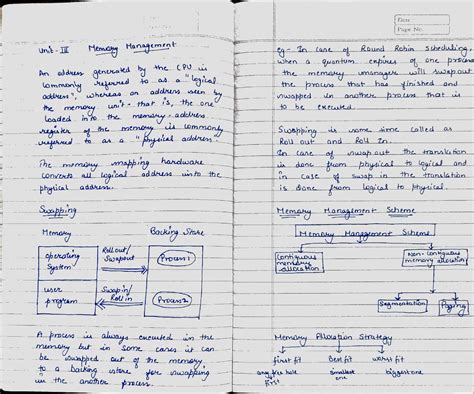 Unit - III Memory Management
An address generated by the CPU is
commonly referred to as a "logical
address", whereas an address seen by
the memory unit - that is, the one
loaded into the memory-address
register of the memory is commonly
referred to as a "physical address".
The memory mapping hardware
converts all logical address into the
physical address.
Swapping
Memory
Backing Store
operating
System
Roll out/
Swapout
Process 1
user
program
Swap in/
Roll in
Process 2
A process is always executed in the
memory but in some cases it can
be swapped out of the memory
to a backing store for swapping
in the another process.
Date
Page No.
eg - In case of Round Robin scheduling,
when a quantum expires of one process
the memory managers will swapout
the process that has finished and
swapped in another process that is
to be executed.
Swapping is some time called as
Roll out and Roll In.
In case of swap out the translation
is done from physical to logical and
in case of swap in the translation
is done from logical to physical.
Memory Management Scheme
Memory Management Scheme
Contiguous
memory
allocation
Non-Contiguous
memory allocation
Segmentation
Paging
Memory Allocation Strategy
first fit best fit worst fit
any free hole smallest biggest one
first one